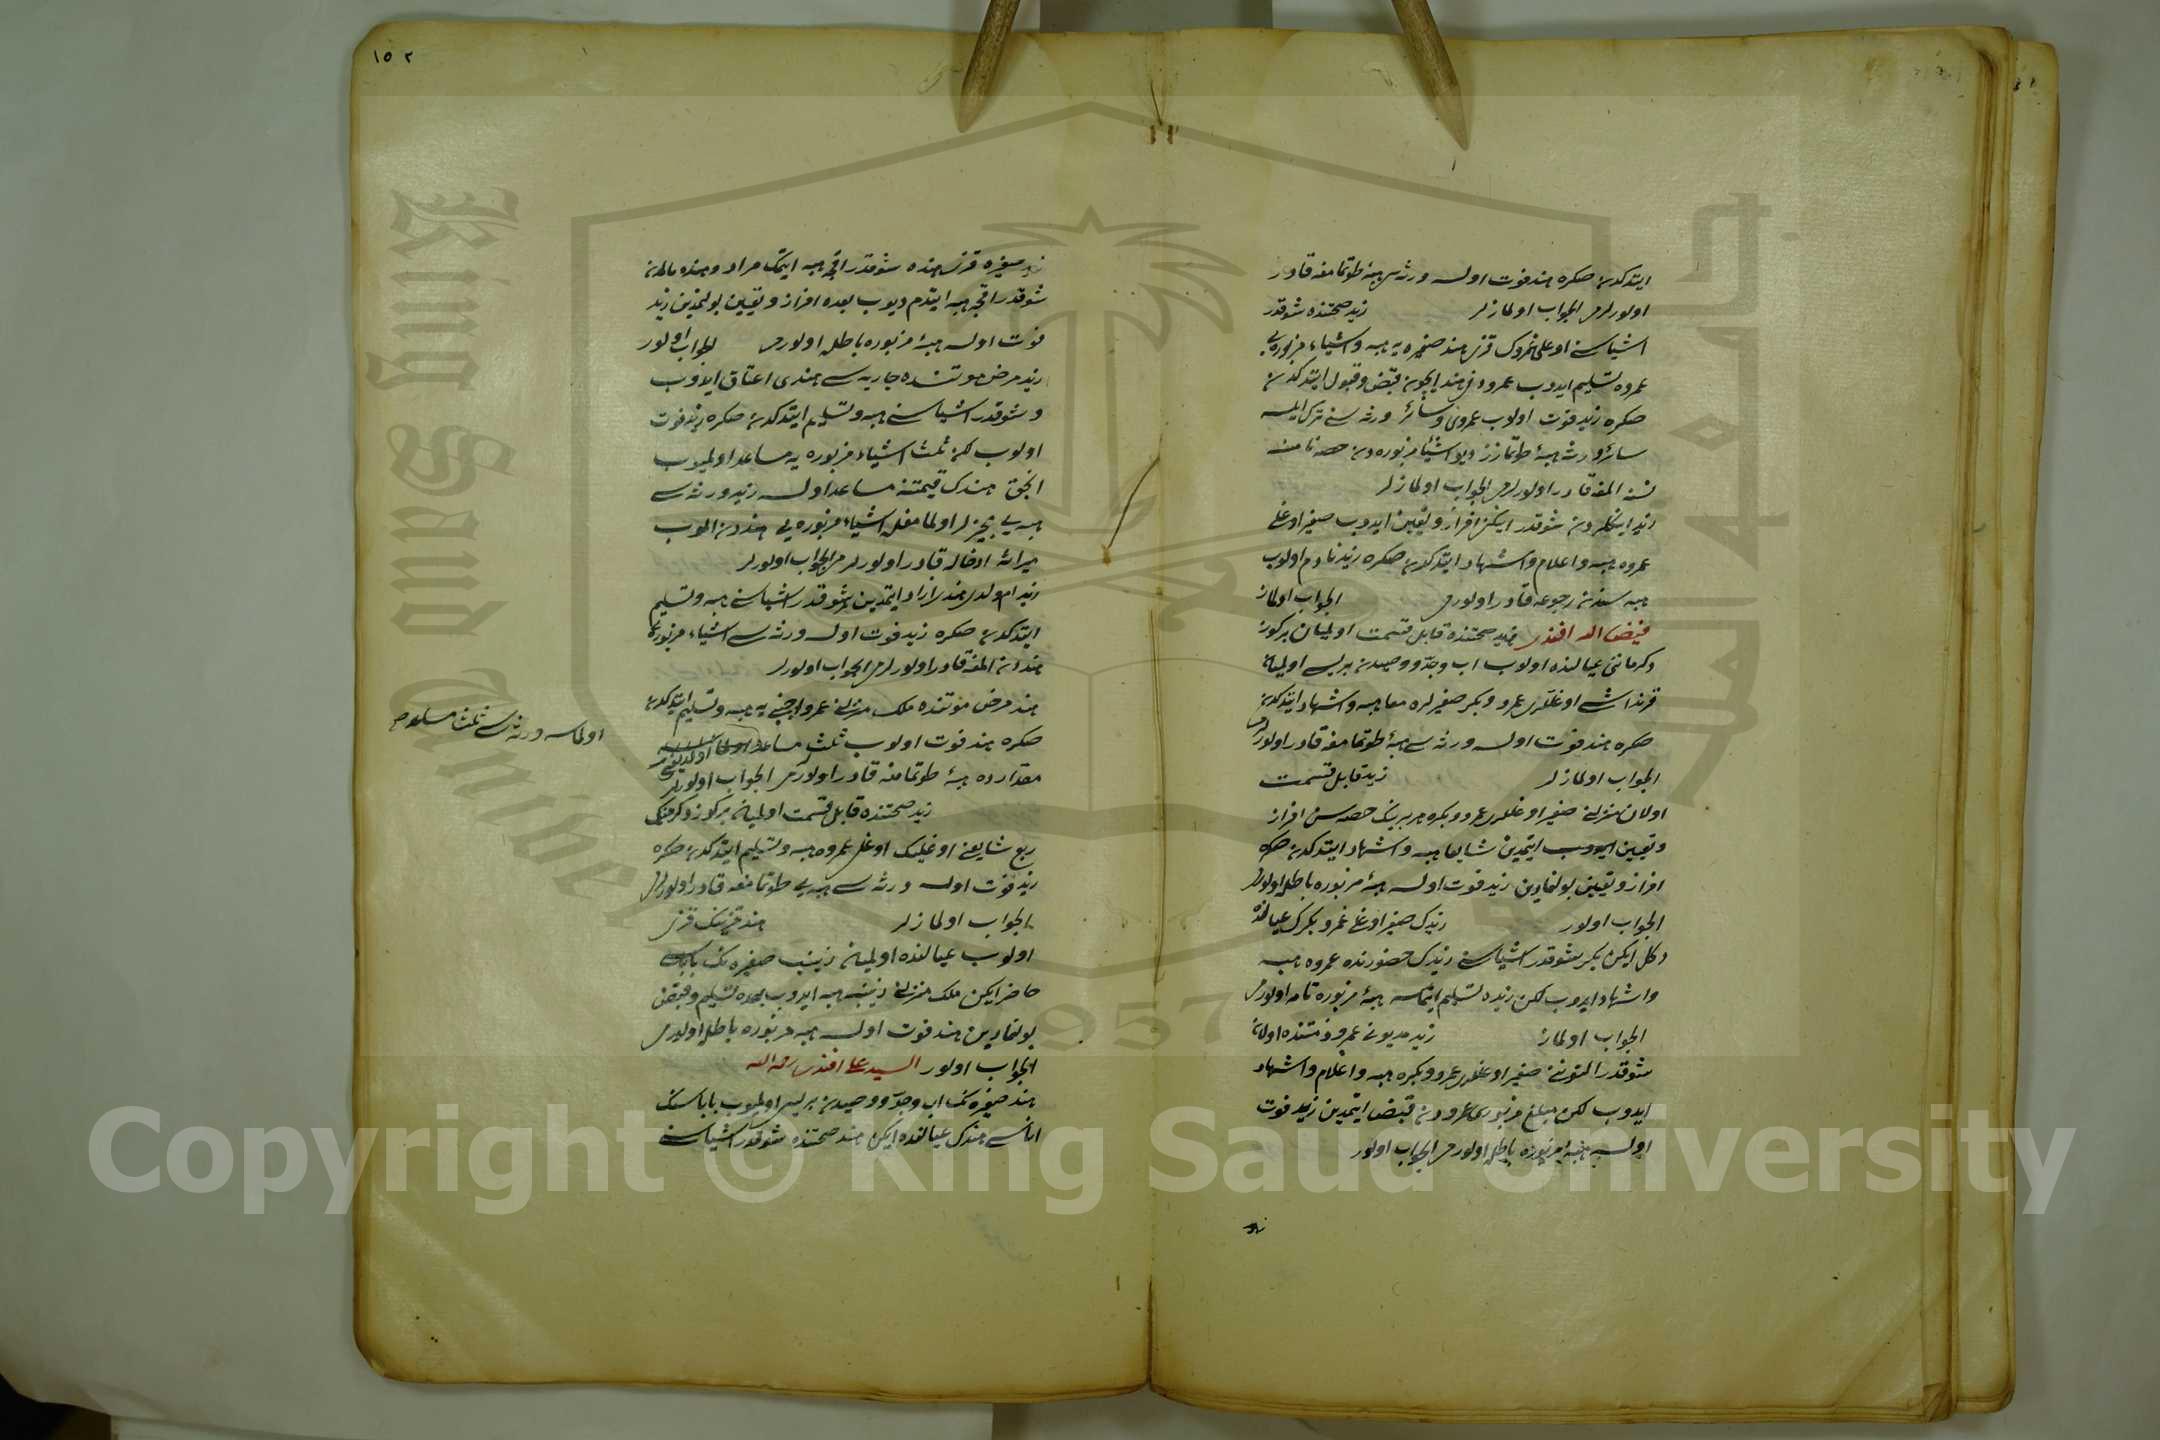 ايتدكدن صكره هند فوت اولسه ورثه سى هبه يى طوتمامغه قادر
اولورلرمى الجواب اولمازلر زيد صحتنده شوقدر
اشياسنى اوغلى عمروك قزى هند صغيره يه هبه و اشياء مزبوره يى
عمروه تسليم ايدوب عمرو دخى هند ايچون قبض و قبول ايتدكدن
صكره زيد فوت اولوب عمروى و سائر ورثه سنى ترك ايلسه
سائر ورثه هبه يى طوتمازز ديو اشياء مزبوره دن حصه نامنه
نسنه المغه قادر اولورلرمى الجواب اولمازلر
زيد اينكلرندن شوقدر اينكى افراز و تعيين ايدوب صغير اوغلى
عمروه هبه و اعلام و اشهاد ايتدكدن صكره زيد نادم اولوب
هبه سندن رجوعه قادر اولورمى الجواب اولماز
فيض الله افندى زيد صحتنده قابل قسمت اولميان بر كوز
دكرماننى عيالنده اولوب اب وجد و وصيدن بريسى اولميان
قرنداشى اوغللرى عمرو و بكر صغيرلره معا هبه و اشهاد ايتدكدن
صكره هند فوت اولسه ورثه سى هبه يى طوتمامغه قادر اولورلرمى
الجواب اولمازلر زيد قابل قسمت
اولان منزلنى صغير اوغللرى عمرو و بكره هر برينك حصه سن افراز
و تعيين ايدوب ايتمدين شايعا هبه و اشهاد ايتدكدن صكره
افراز و تعيين بولنمادين زيد فوت اولسه هبه مزبوره باطل اولورمى
الجواب اولور زيدك صغير اوغلى عمرو بكرك عيالنده
دكل ايكن بكر شوقدر اشياسنى زيدك حضورنده عمروه هبه
و اشهاد ايدوب لكن زيده تسليم ايتمسه هبه مزبوره تامه اولورمى
الجواب اولماز زيد مديونى عمرو ذمتنده اولان
شوقدر التوننى صغير اوغللرى عمرو و بكره هبه و اعلام و اشهاد
ايدوب لكن مبلغ مزبورى عمرودن قبض ايتمدين زيد فوت
اولسه هبه مزبوره باطله اولورمى الجواب اولور
زيد
١٥٢
زيد صغيره قزى هنده شوقدر اقچه هبه ايتمك مراد و هنده مالمدن
شوقدر اقچه هبه ايتدم ديوب بعده افراز و تعيين بولنمدين زيد
فوت اولسه هبه مزبوره باطله اولورمى الجواب اولور
زيد مرض موتنده جاريه سى هندى اعتاق ايدوب
و شوقدر اشياسنى هبه و تسليم ايتدكدن صكره زيد فوت
اولوب لكن ثلث اشياء مزبوره يه مساعد اولميوب
انجق هندك قيمتنه مساعد اولسه زيد ورثه سى
هبه يى مجيزلر اولمامغله اشياء مزبوره يى هنددن الوب
ميراثه ادخاله قادر اولورلرمى الجواب اولورلر
زيد ام ولدى هندى ازاد ايتمدين شوقدر اشياسنى هبه و تسليم
ايتدكدن صكره زيد فوت اولسه ورثه سى اشياء مزبوره يى
هنددن المغه قادر اولورلرمى الجواب اولورلر
هند مرض موتنده ملك منزلنى عمرو اجنبى يه هبه و تسليم ايتدكدن
صكره هند فوت اولوب ثلث مساعد
اولماسه ورثه سى ثلث مساعد
مقدارده هبه يى طوتمامغه قادر اولورلرمى الجواب اولورلر
زيد صحتنده قابل قسمت اولميان بر كوز دكرمنك
ربع شايعنى اوغلينك اوغلى عمروه هبه و تسليم ايتدكدن صكره
زيد فوت اولسه ورثه سى هبه يى طوتمامغه قادر اولورلرمى
الجواب اولمازلر هند قزينك قزى
اولوب عيالنده اولميان زينب صغيره نك باباسى
حاضر ايكن ملك منزلنى زينبه هبه ايدوب بعده تسليم و قبض
بولنمادين هند فوت اولسه هبه مزبوره باطله اولورمى
الجواب اولور السيد على افندى رحمه الله
هند صغيره نك اب وجد و وصيدن بريسى اولميوب باباسنك
اناسى هندك عيالنده ايكن هند صحتنده شوقدر اشياسنى